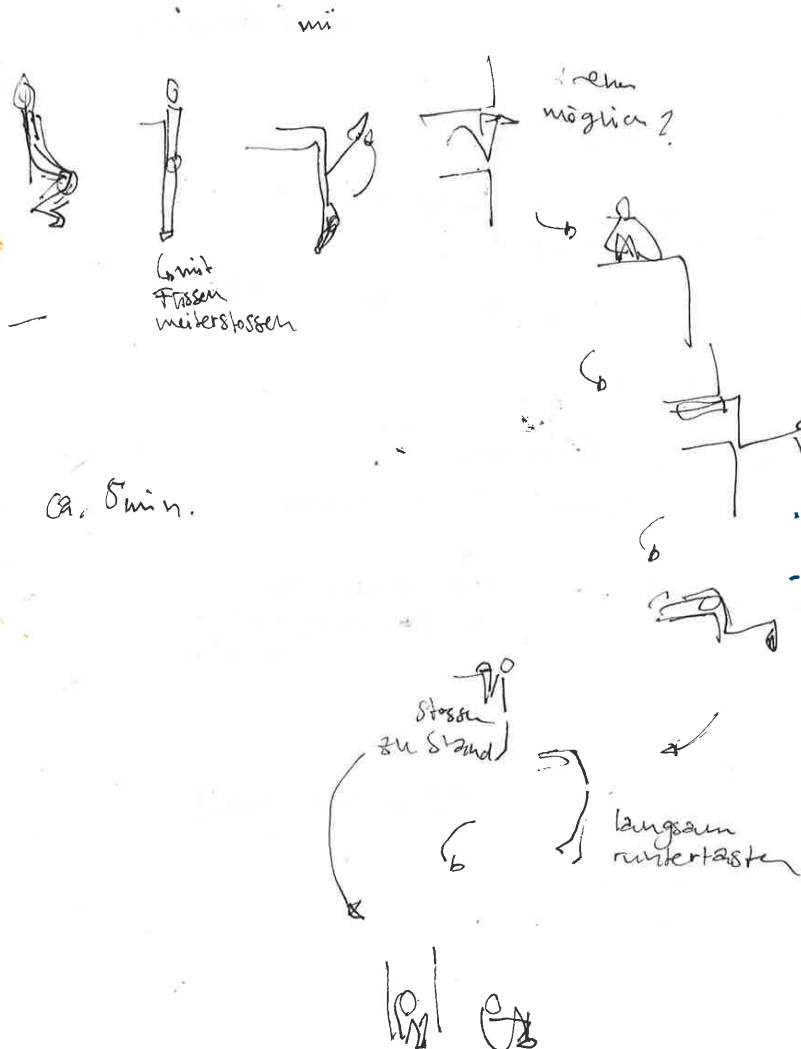 möglich?
mit
Füssen
weiterstossen
ca. 5min.
stossen
zu Stand
langsam
runtertasten